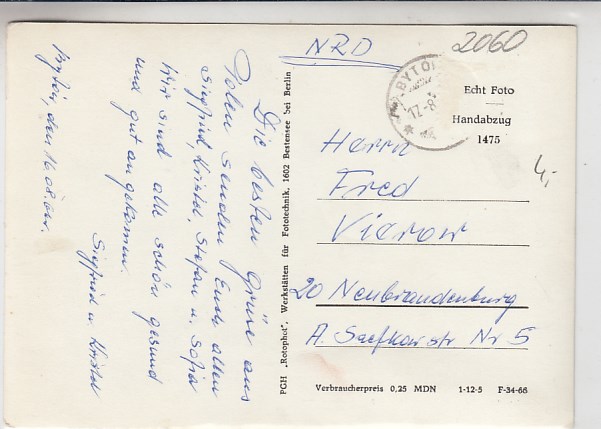 Die besten Grüße aus
Polen senden Euch allen
Siegfried, Kristel, Stefan u. Sofia
Wir sind alle schön gesund
und gut angekommen.
Siegfried u. Kristel
den 16.08.
PGH „Rotophot", Werkstätten für Fototechnik, 1602 Bestensee bei Berlin
NRD
2060
BYTO
17.-8
Echt Foto
Handabzug
1475
4,-
Herrn
Fred
Vierow
20 Neubrandenburg
A. Saefkowstr Nr 5
Verbraucherpreis 0,25 MDN 1-12-5 F-34-66